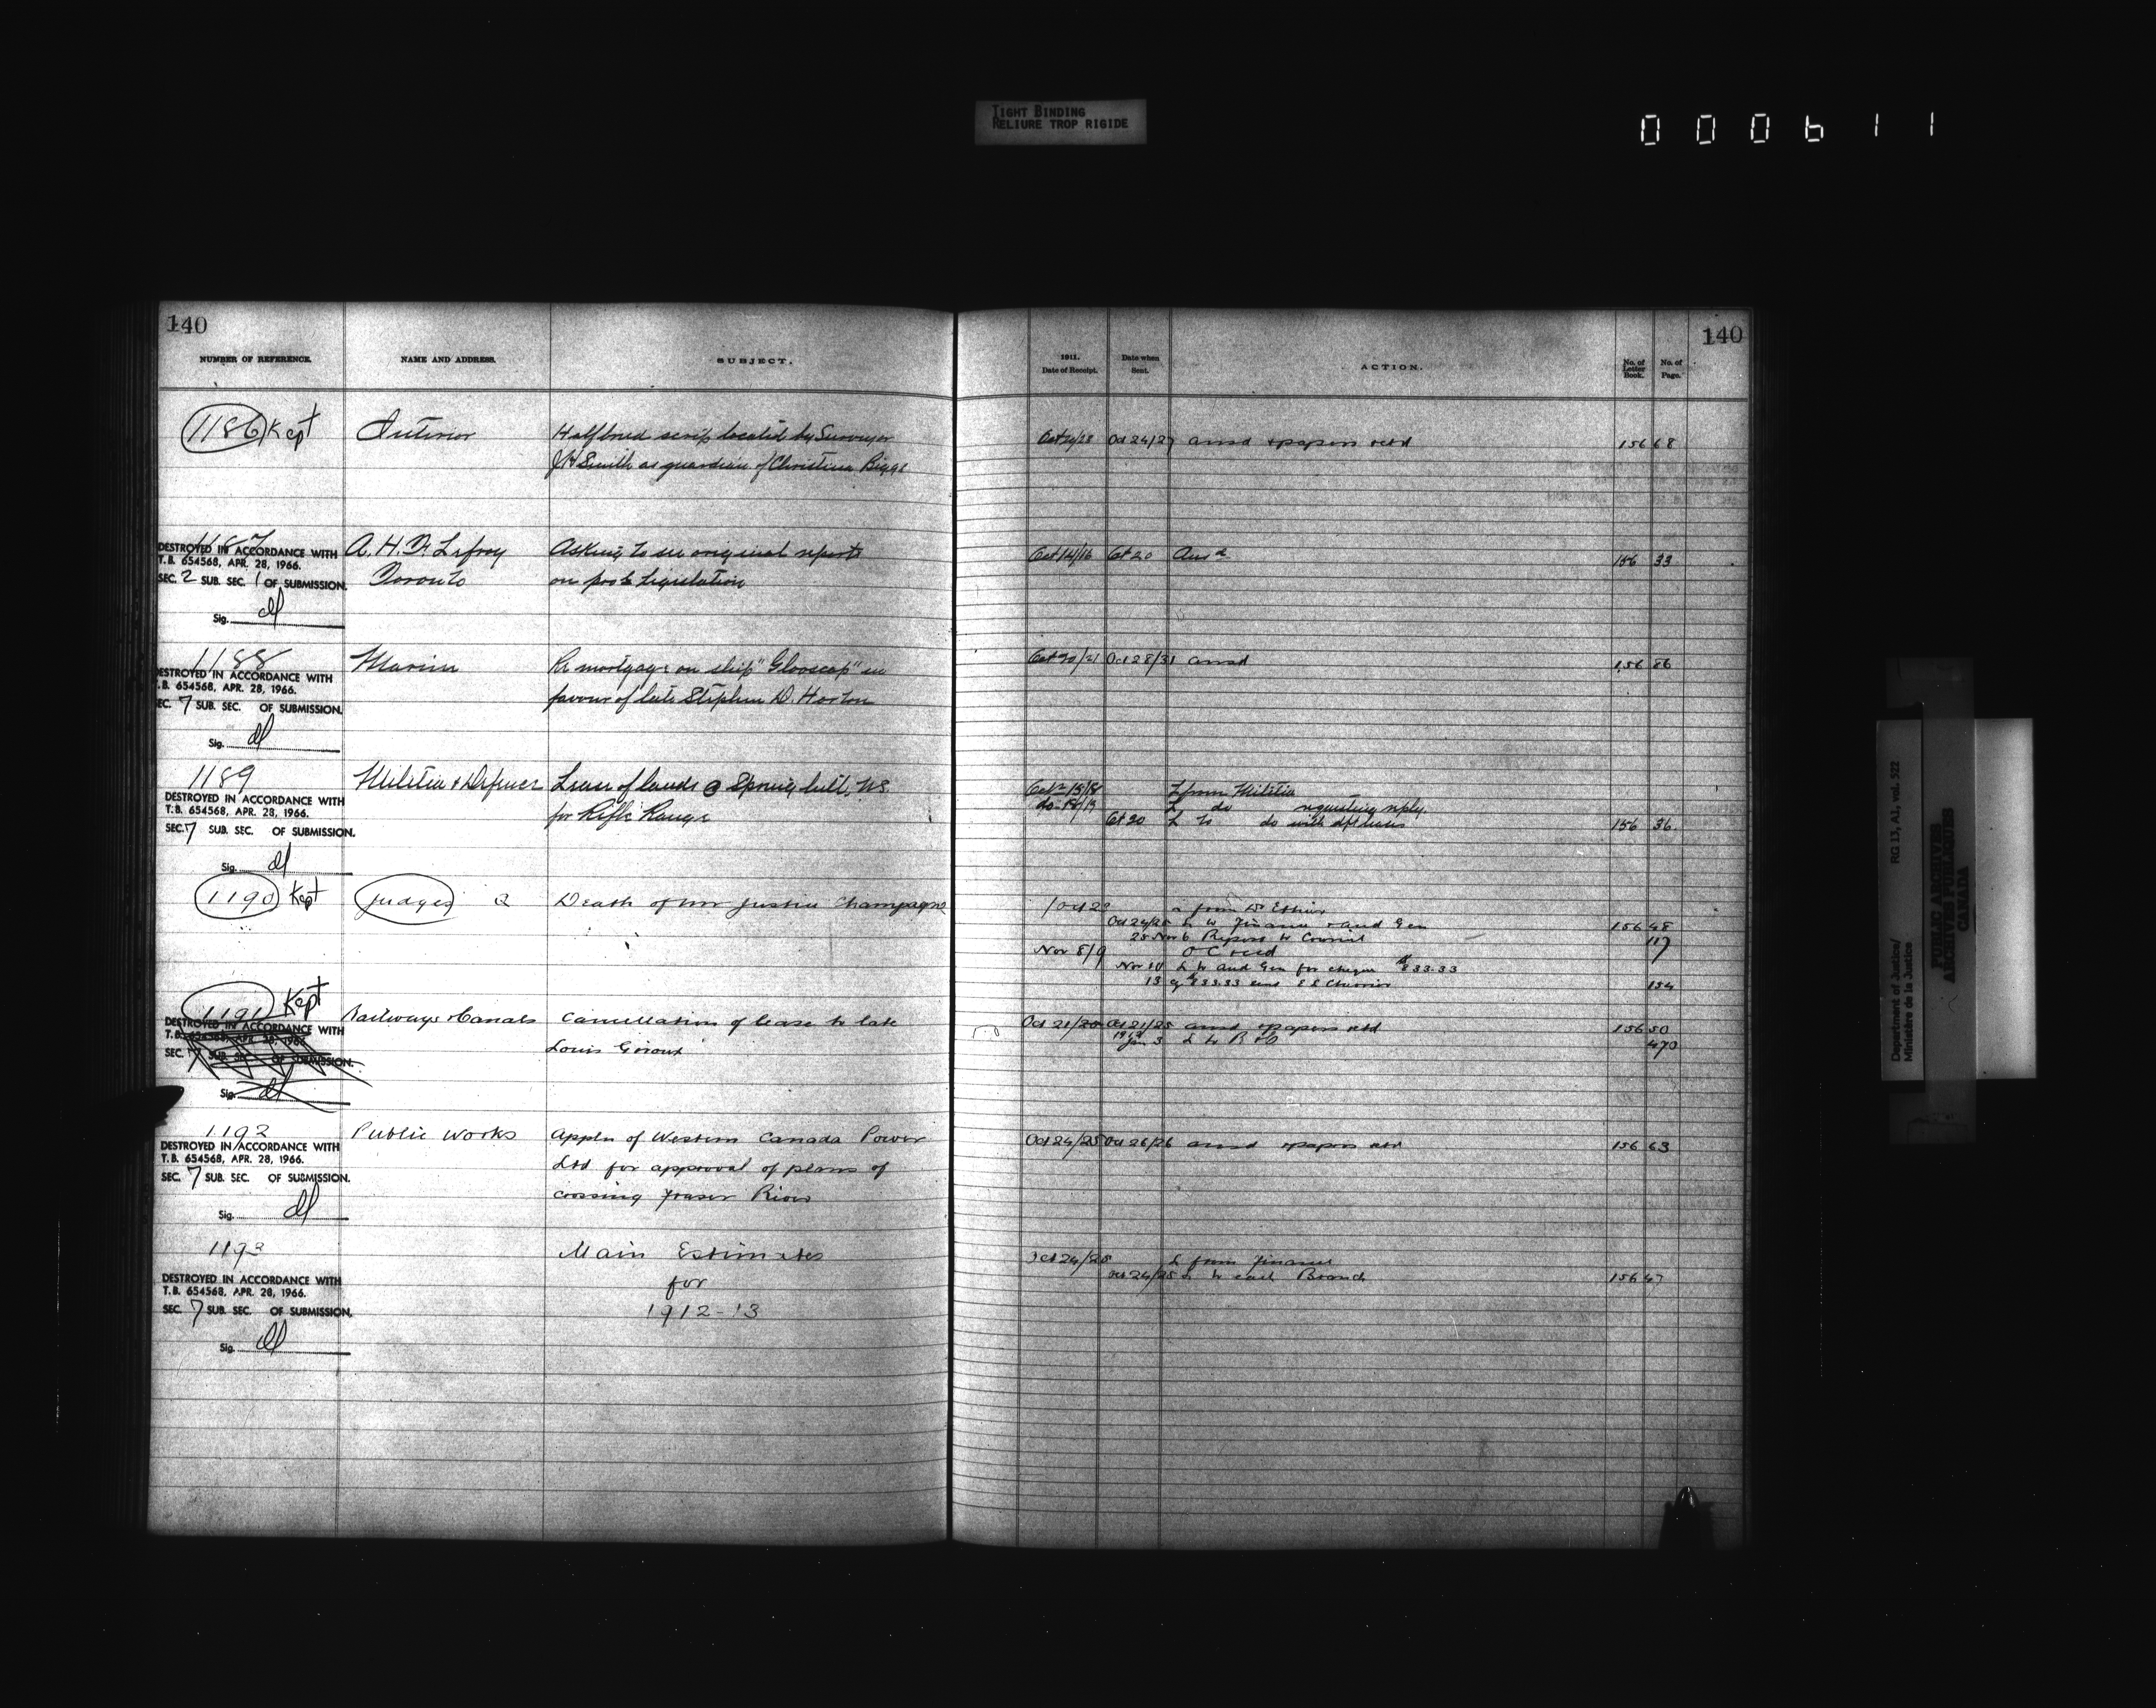 TIGHT BINDING
RELIURE TROP RIGIDE
000611
140
NUMBER OF REFERENCE.
NAME AND ADDRESS.
SUBJECT.
1186 Kept
Interior
Halfbreed scrip located by Surveyor
J H Smith as guardian of Christina Biggs
1187
DESTROYED IN ACCORDANCE WITH
T.B. 654568, APR. 28, 1966.
SEC. 2 SUB. SEC. 1 OF SUBMISSION.
Sig.
A. H. F. Lefroy
Toronto
Asking to see original reports
on Legislation
1188
DESTROYED IN ACCORDANCE WITH
T.B. 654568, APR. 28, 1966.
SEC. 7 SUB. SEC. OF SUBMISSION.
Sig.
Marine
Re mortgage on ship "Glooscap" in
favour of late Stephen D. Horton
1189
DESTROYED IN ACCORDANCE WITH
T.B. 654568, APR. 28, 1966.
SEC. 7 SUB. SEC. OF SUBMISSION.
Sig.
Militia & Defence
Lease of lands @ Spring hill, N.S.
for Rifle Range
1190 Kept
Judges Q
Death of Mr Justice Champagne
1191 Kept
DESTROYED IN ACCORDANCE WITH
T.B. 654568, APR. 28, 1966.
SEC. 7 SUB. SEC. OF SUBMISSION.
Sig.
Railways & Canals
Cancellation of lease to late
Louis Giroux
1192
DESTROYED IN ACCORDANCE WITH
T.B. 654568, APR. 28, 1966.
SEC. 7 SUB. SEC. OF SUBMISSION.
Sig.
Public Works
Appln of Western Canada Power
Ltd for approval of plans of
crossing Fraser River
1193
DESTROYED IN ACCORDANCE WITH
T.B. 654568, APR. 28, 1966.
SEC. 7 SUB. SEC. OF SUBMISSION.
Sig.
Main Estimates
for
1912-13
140
1911.
Date of Receipt.
Date when
Sent.
ACTION.
No. of
Letter
Book.
No. of
Page.
Oct 24/27 ansd & papers retd 156 68
Oct 14/16 Oct 20 Ansd 156 33
Oct 20/21 Oct 28/31 ansd 156 86
Oct 18/18 L from Militia
do 18/19 L do requesting reply.
Oct 20 L to do with dft leases 156 36
Oct 24/25 L to Finance & Aud Gen 156 48
25 Nov 6 Report to Council 117
Nov 8/9 O C recd
Nov 10 L to Aud Gen for cheque
13 154
Oct 21/25 ansd & papers retd 156 50
Jan 3 L to R & C 470
Oct 24/25 Oct 26/26 ansd & papers retd 156 63
Oct 24/25 L from Finance
Oct 24/25 L to each Branch 156 47
Department of Justice/
Ministère de la Justice
RG 13, A1, vol. 522
PUBLIC ARCHIVES
ARCHIVES PUBLIQUES
CANADA